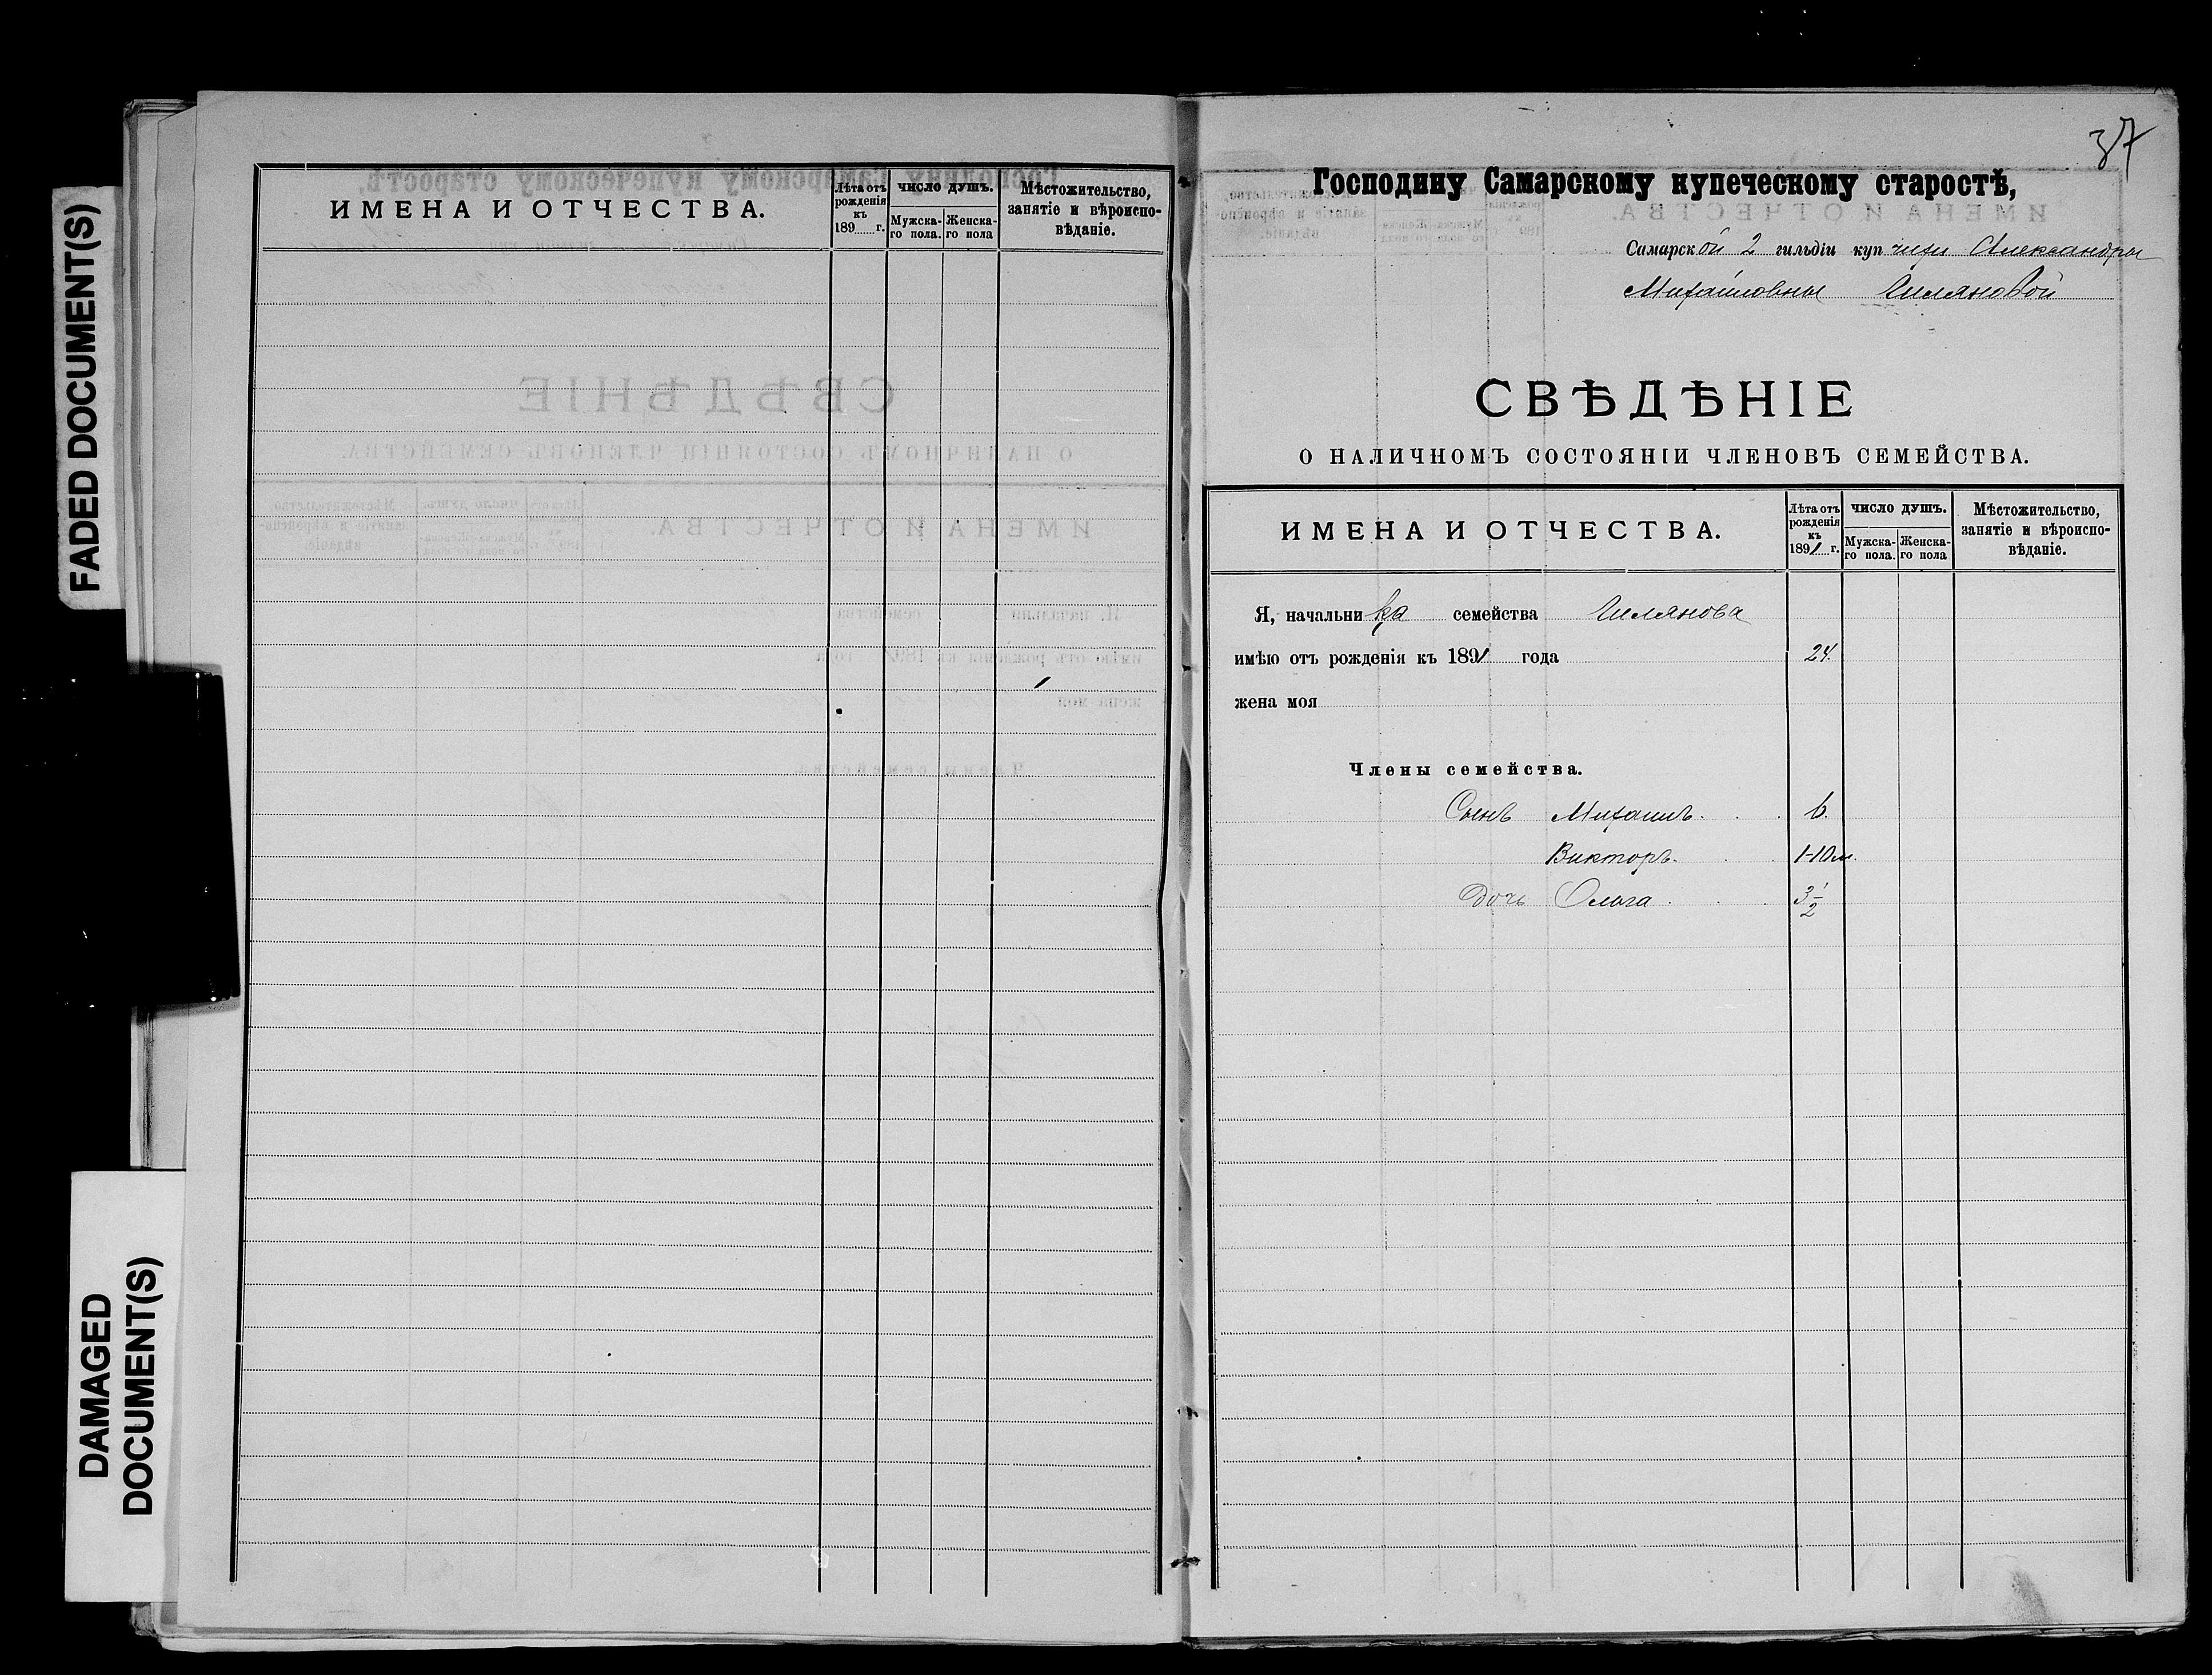 FADED DOCUMENT(S)
DAMAGED
DOCUMENT(S)
ИМЕНА И ОТЧЕСТВА.
Лѣта отъ рожденія къ 189 г.
ЧИСЛО ДУШЪ.
Мужска-го пола.
Женска-го пола
Мѣстожительство, занятіе и вѣроиспо-вѣданіе.
37
Господину Самарскому купеческому старостѣ,
Самарской 2 гильдіи купчихи Александры
Михайловны
СВѢДѢНІЕ
О НАЛИЧНОМЪ СОСТОЯНІИ ЧЛЕНОВЪ СЕМЕЙСТВА.
ИМЕНА И ОТЧЕСТВА.
Лѣта отъ рожденія къ 1891 г.
ЧИСЛО ДУШЪ.
Мужска-го пола.
Женска-го пола
Мѣстожительство, занятіе и вѣроиспо-вѣданіе.
Я, начальница семейства
имѣю отъ рожденія къ 1891 года 24.
жена моя
Члены семейства.
Сынъ Михаилъ. 6.
Викторъ. 1-10 м.
Дочь Ольга 3 1/2